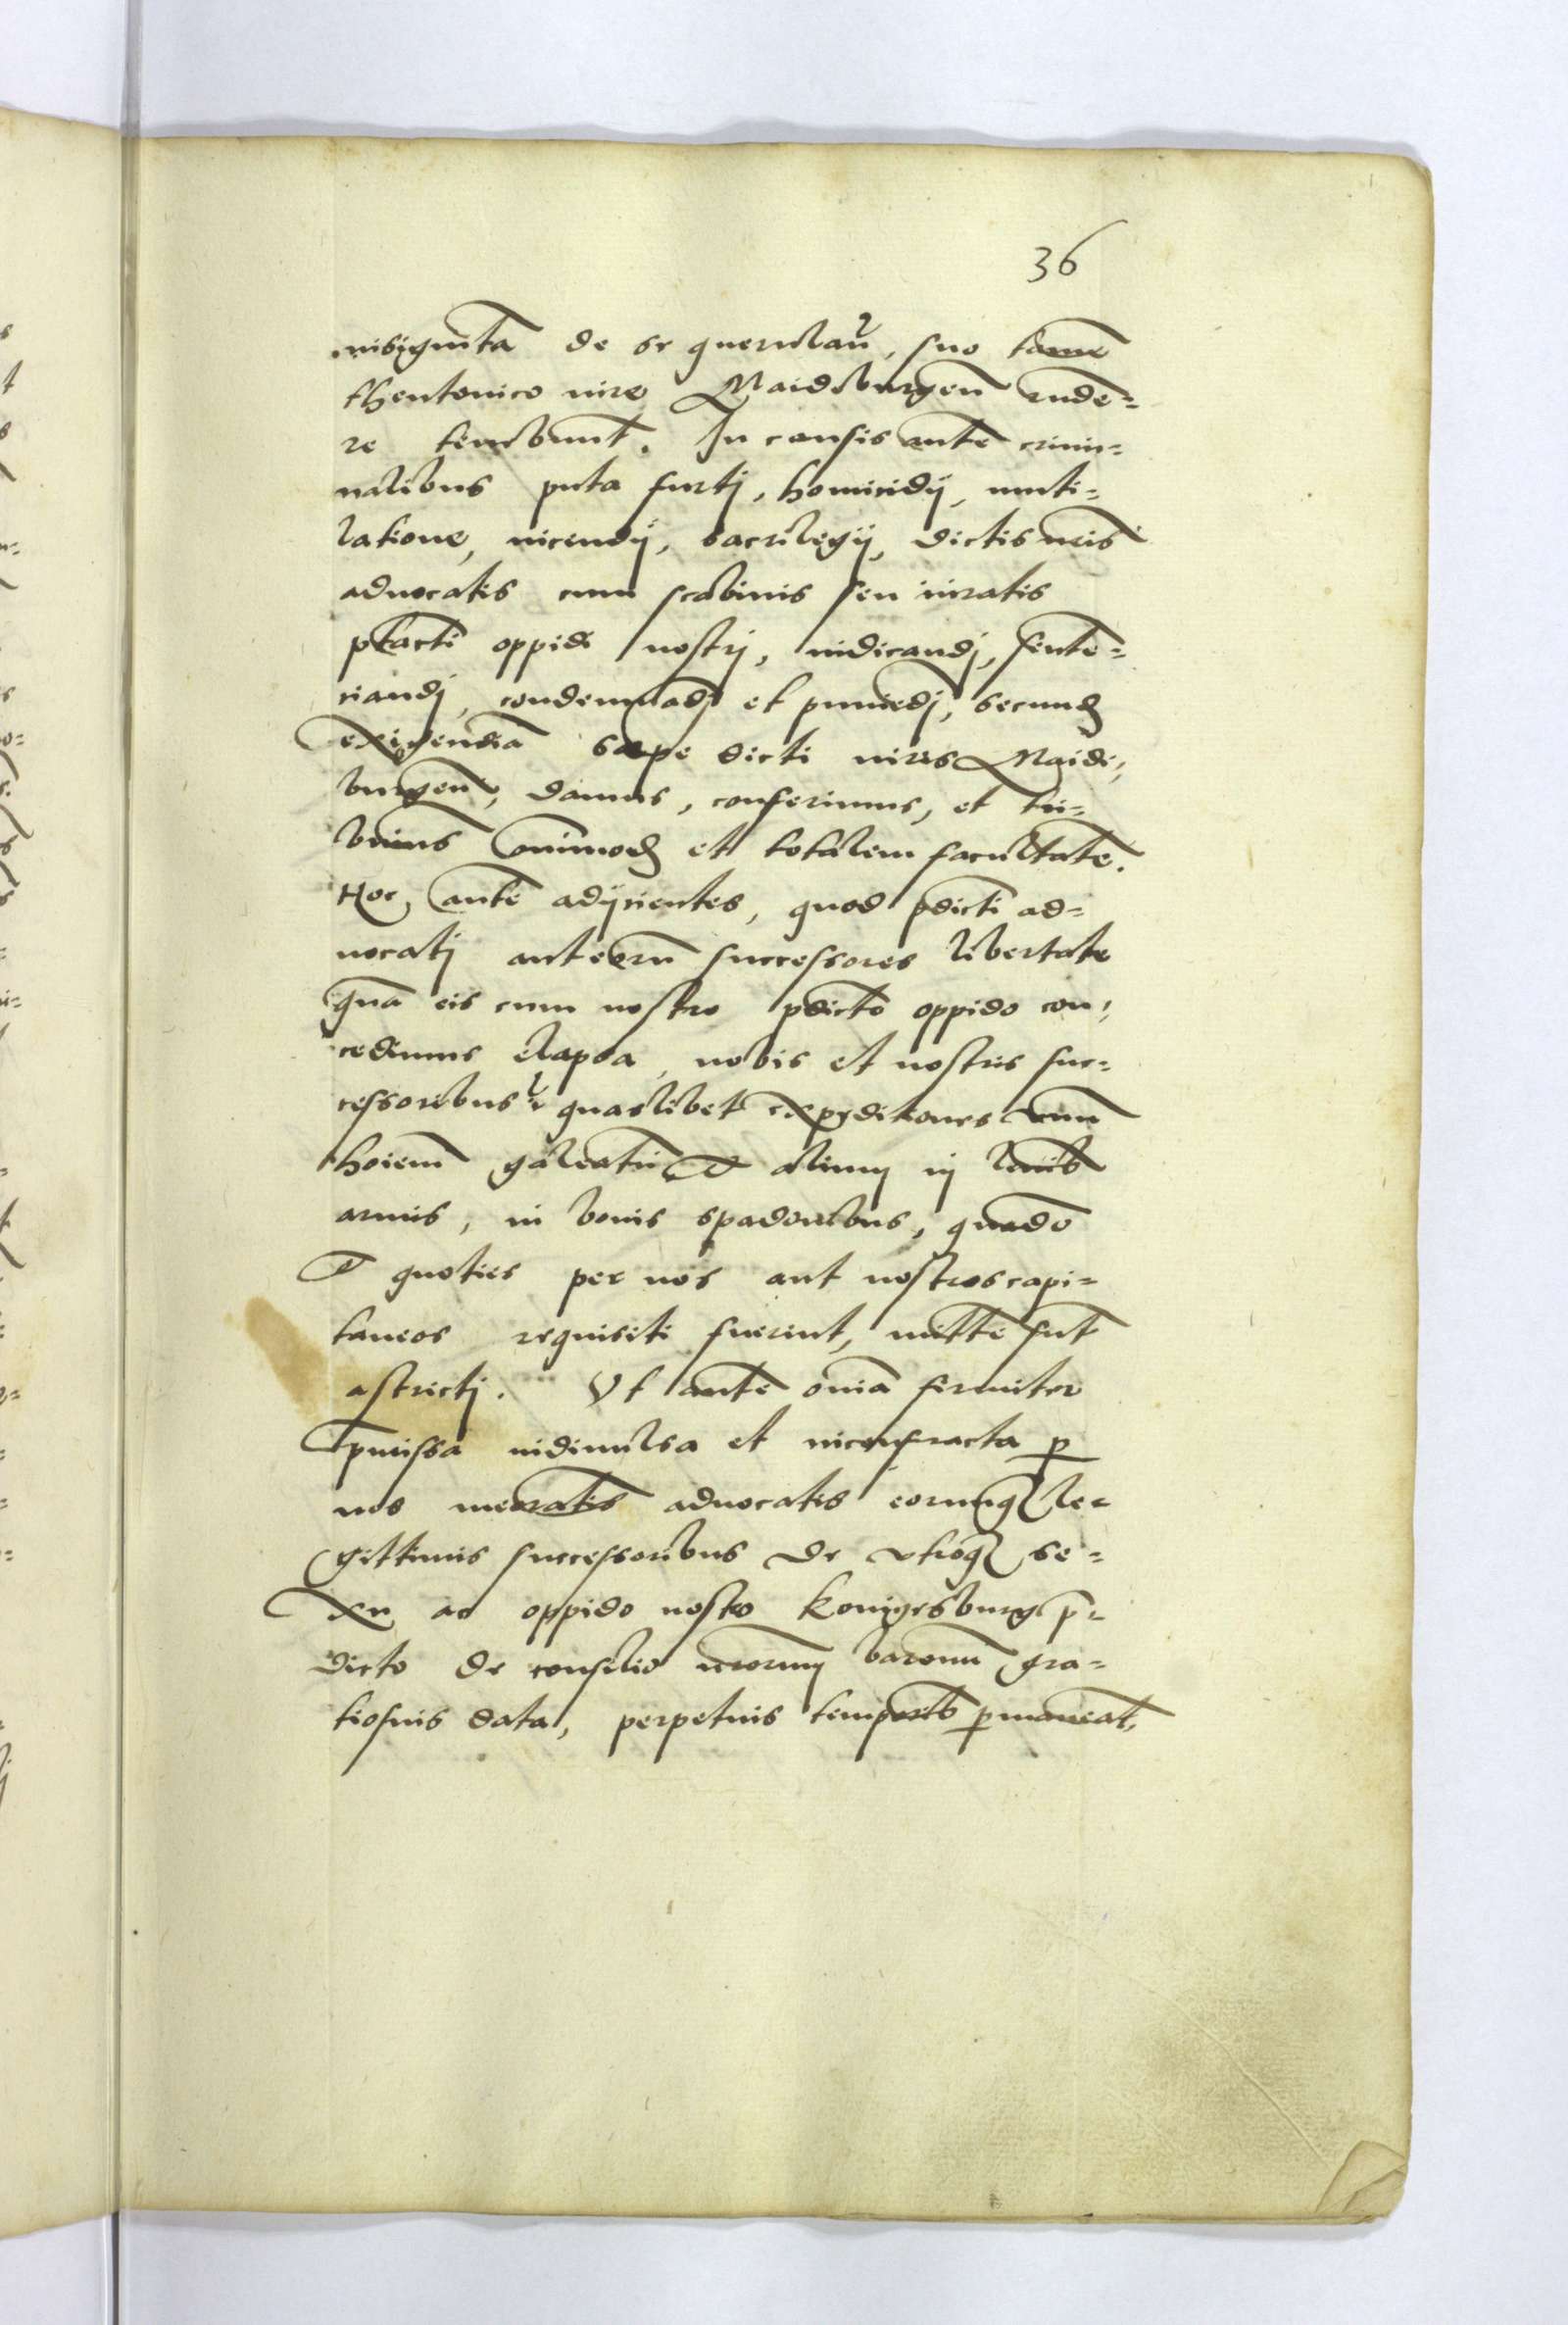 36
insignita de se querulaū, suo tame
theutonico iure Maideburgeñ rnde=
re tenebunt. In causis aute crimi=
nalibus puta furtj, homicidij, muti=
latione, incendij, sacrilegij, dictis nris
aduocatis cum scabinis seu iuratis
ptacti oppidi nostrj, iudicandj, sente=
ciandj, condemnadj et puniedj, secund
exigendia saepe dicti iuris Maide,
burgeñ, damus, conferimus, et tri=
buims omnimod et totalem facultate.
Hoc aute adijcientes, quod pdicti ad=
uocatj aut eorū successores libertate
qua eis cum nostro pdicto oppido con,
cedimus elapsa, nobis et nostris suc=
cessoribus quaslibet expeditiones cum
hoiem galeatū et alium in leuib
armis, in bonis spadonibus, quado
et quoties per nos aut nostros capi=
taneos requisiti fuerint, mitte sut
astrictj. Ut aute omia firmiter
pmissa indiuulsa et inconfracta p
nos meoratis aduocatis eorumq le=
gittimis successoribus de utroq se=
xu ac oppido nostro Konigesburg p=
dicto de consilio nrorum baronū gra=
tiosius data, perpetuis temporib pmaneat,